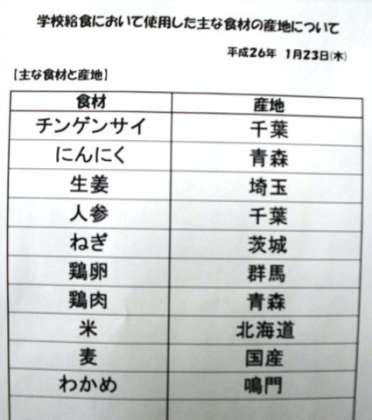 学校給食において使用した主な食材の産地について
平成26年 1月23日(木)
【主な食材と産地】
食材 産地
チンゲンサイ 千葉
にんにく 青森
生姜 埼玉
人参 千葉
ねぎ 茨城
鶏卵 群馬
鶏肉 青森
米 北海道
麦 国産
わかめ 鳴門